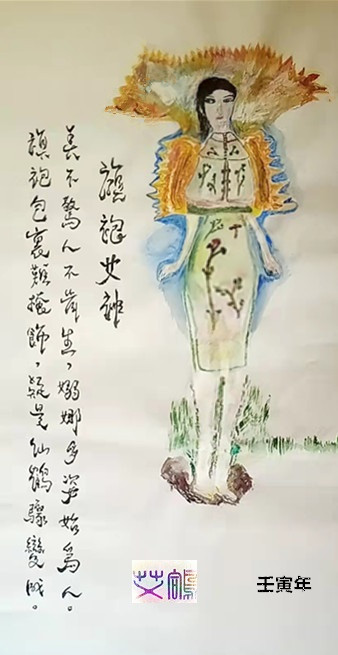 旗袍女神
美不驚人不肯生，嫋娜多姿始為人。
旗袍包裹難掩飾，疑是仙鶴驟變成。
艾鶴
壬寅年